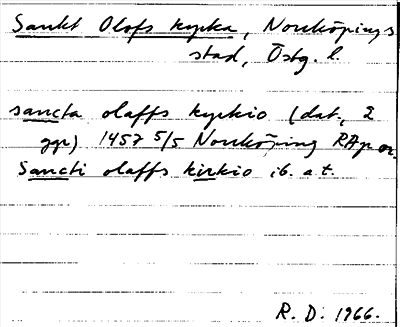 Sankt Olofs kyrka, Norrköpings
stad, Östg. l.
sancta olaffs kyrkio (dat., 2
ggr) 1457 5/5 Norrköping RAp or.
Sancti olaffs kirkio ib. a.t.
R. D. 1966.